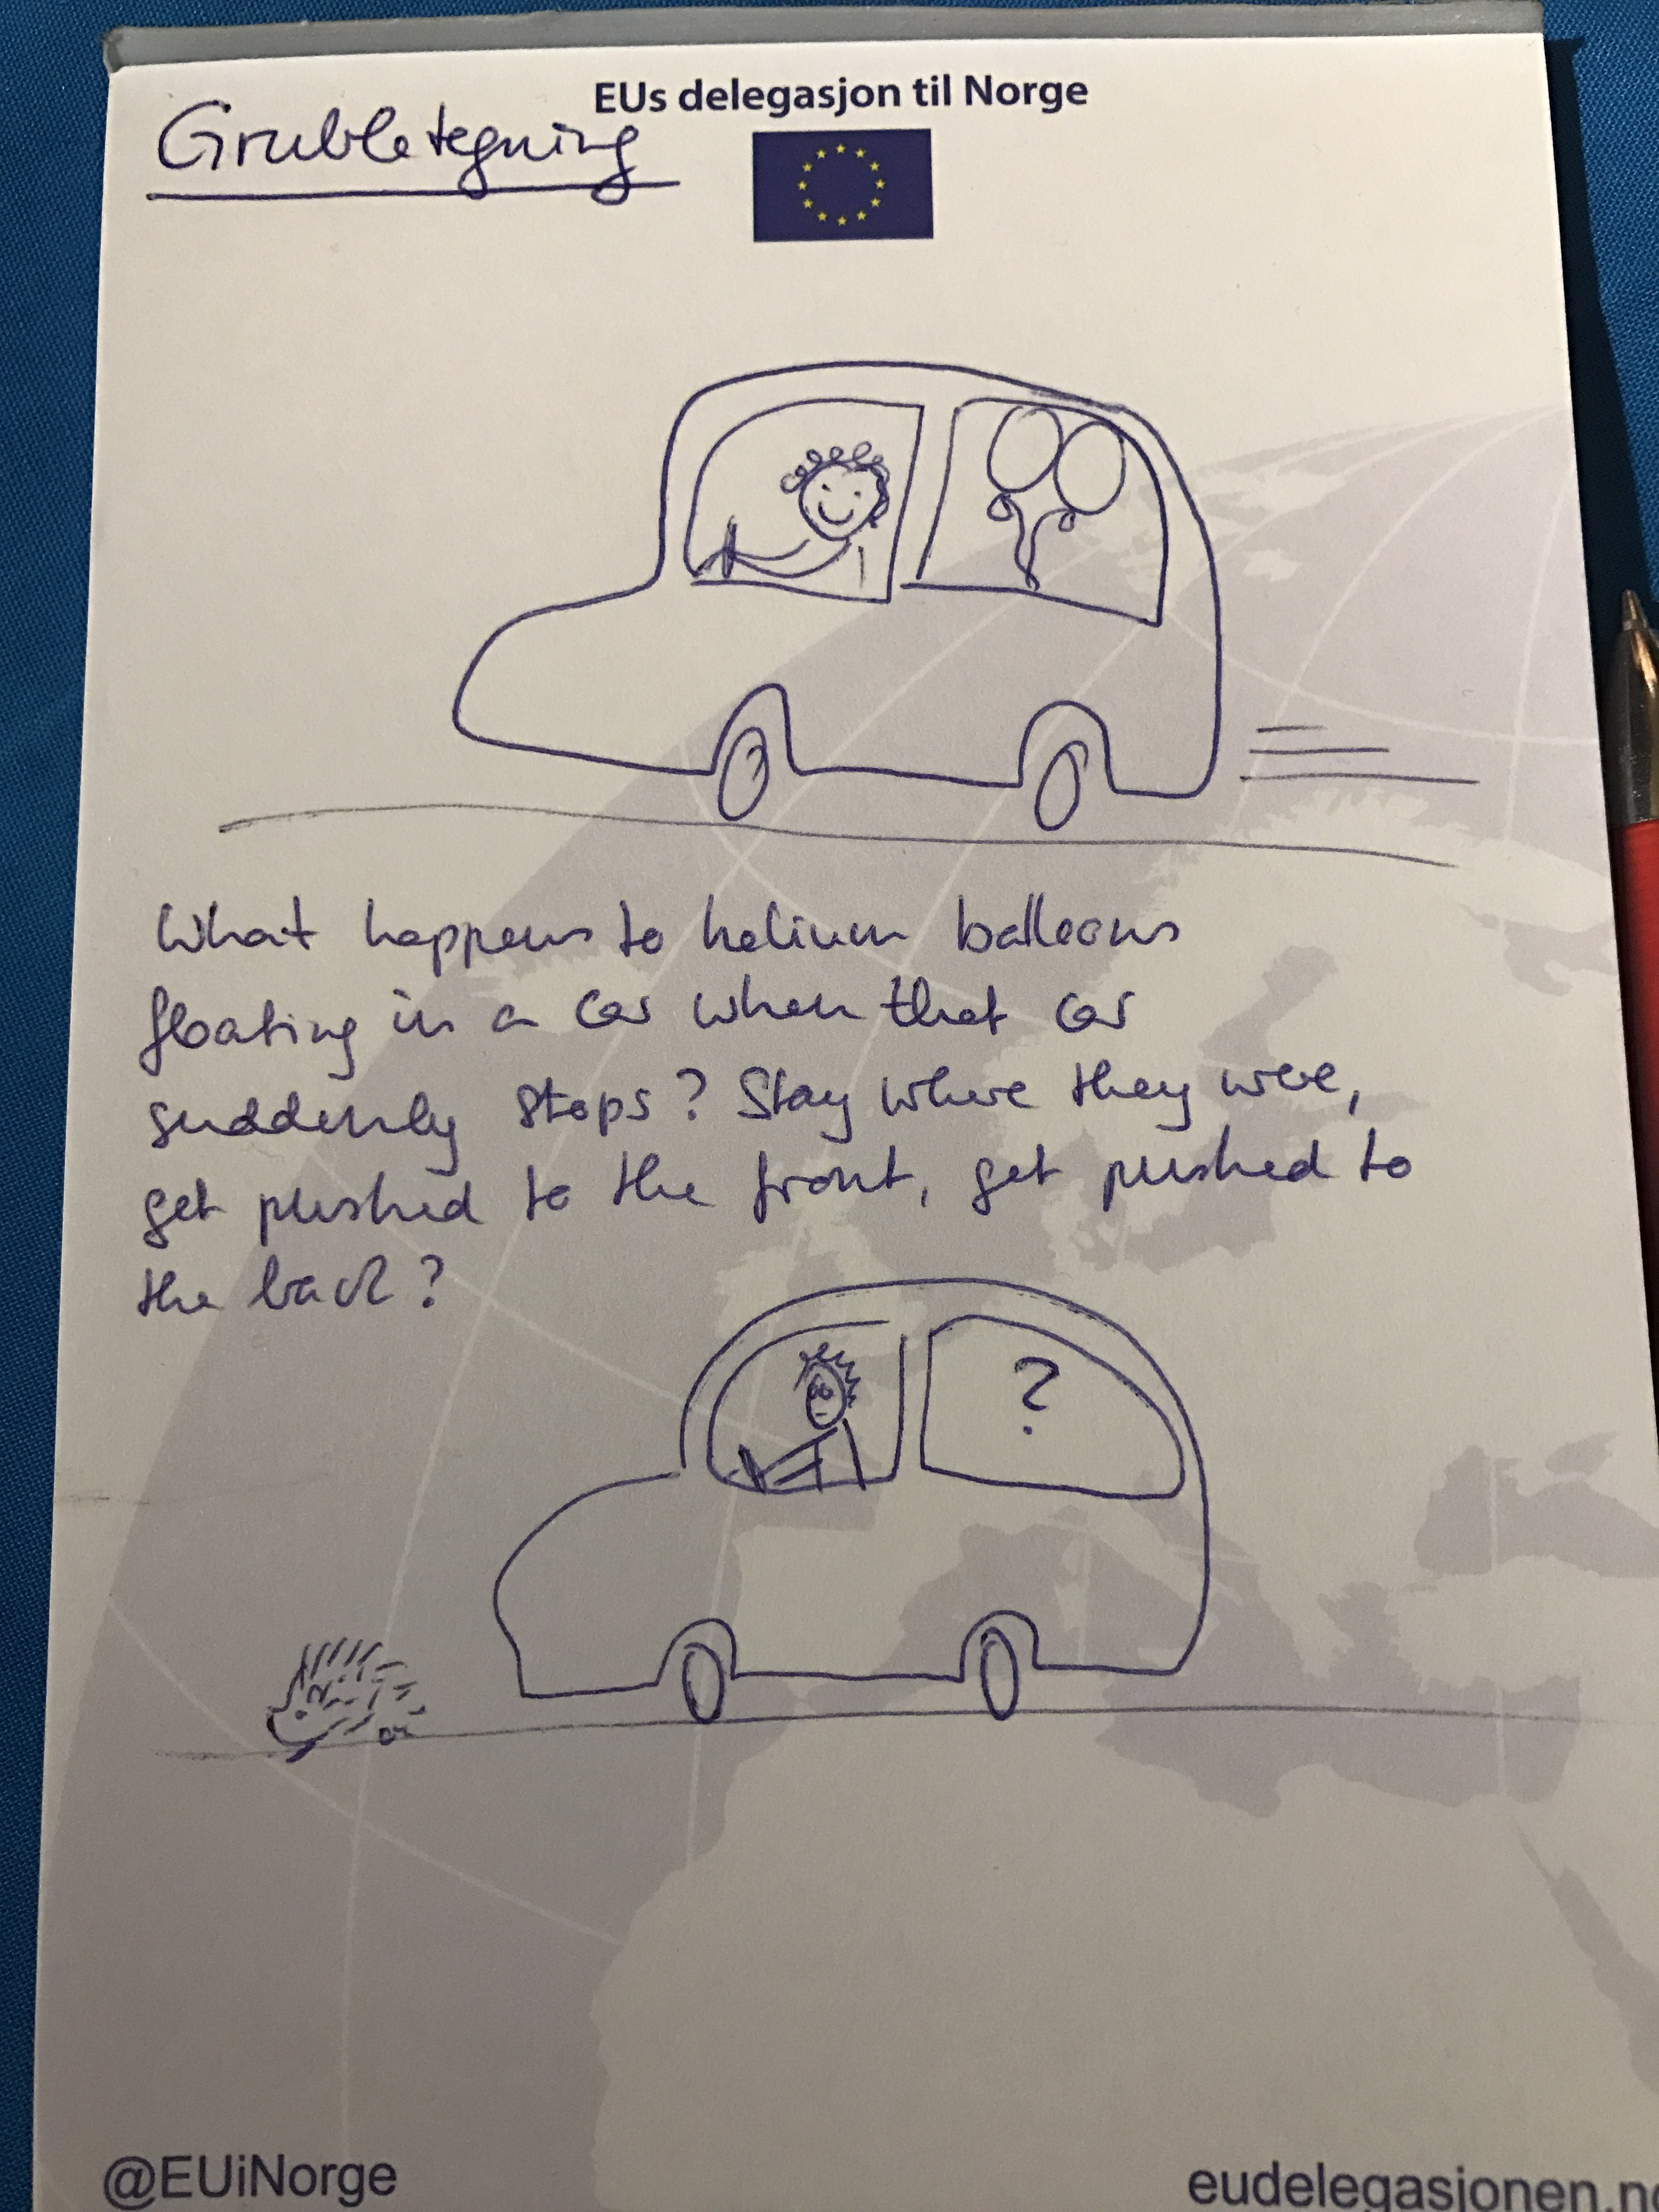 EUs delegasjon til Norge
Grubletegning
What happens to helium balloons
floating in a car when that car
suddenly stops? Stay where they were,
get pushed to the front, get pushed to
the back?
?
@EUiNorge
eudelegasjonen.no